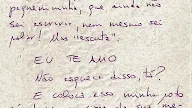 pequenininha, que ainda não
sei escrever, nem mesmo sei
falar! Mas "escuta":
EU TE AMO
Não esqueça disso, tá?
E coloca essa minha foto